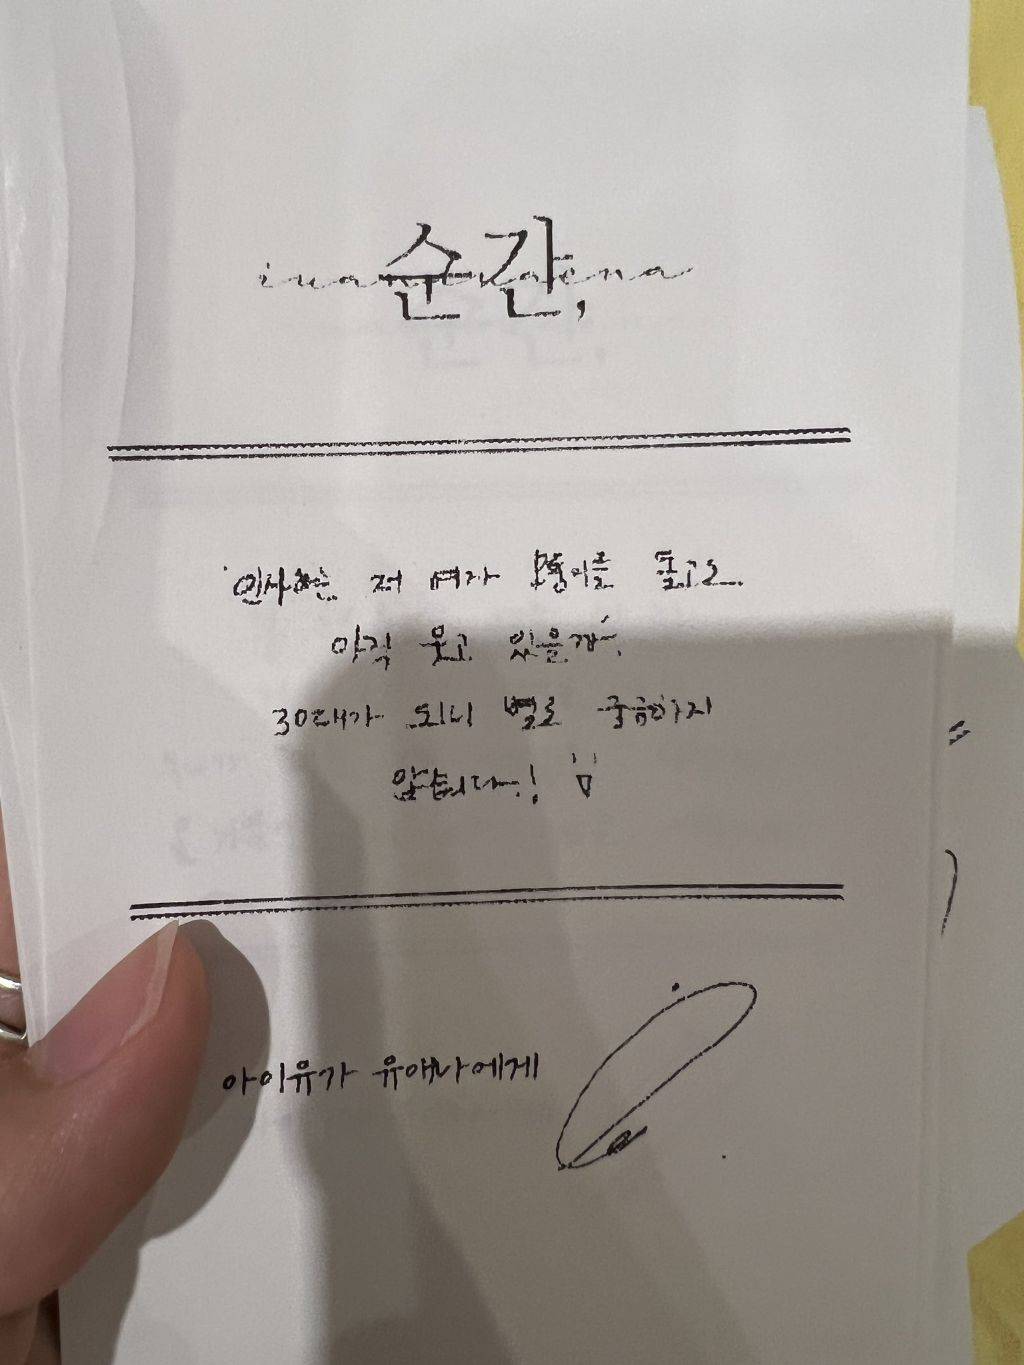 순간,
인사하는 저 여자 모퉁이를 돌고도
아직 웃고 있을까.
30대가 되니 별로 궁금하지
않습니다..!
아이유가 유애나에게